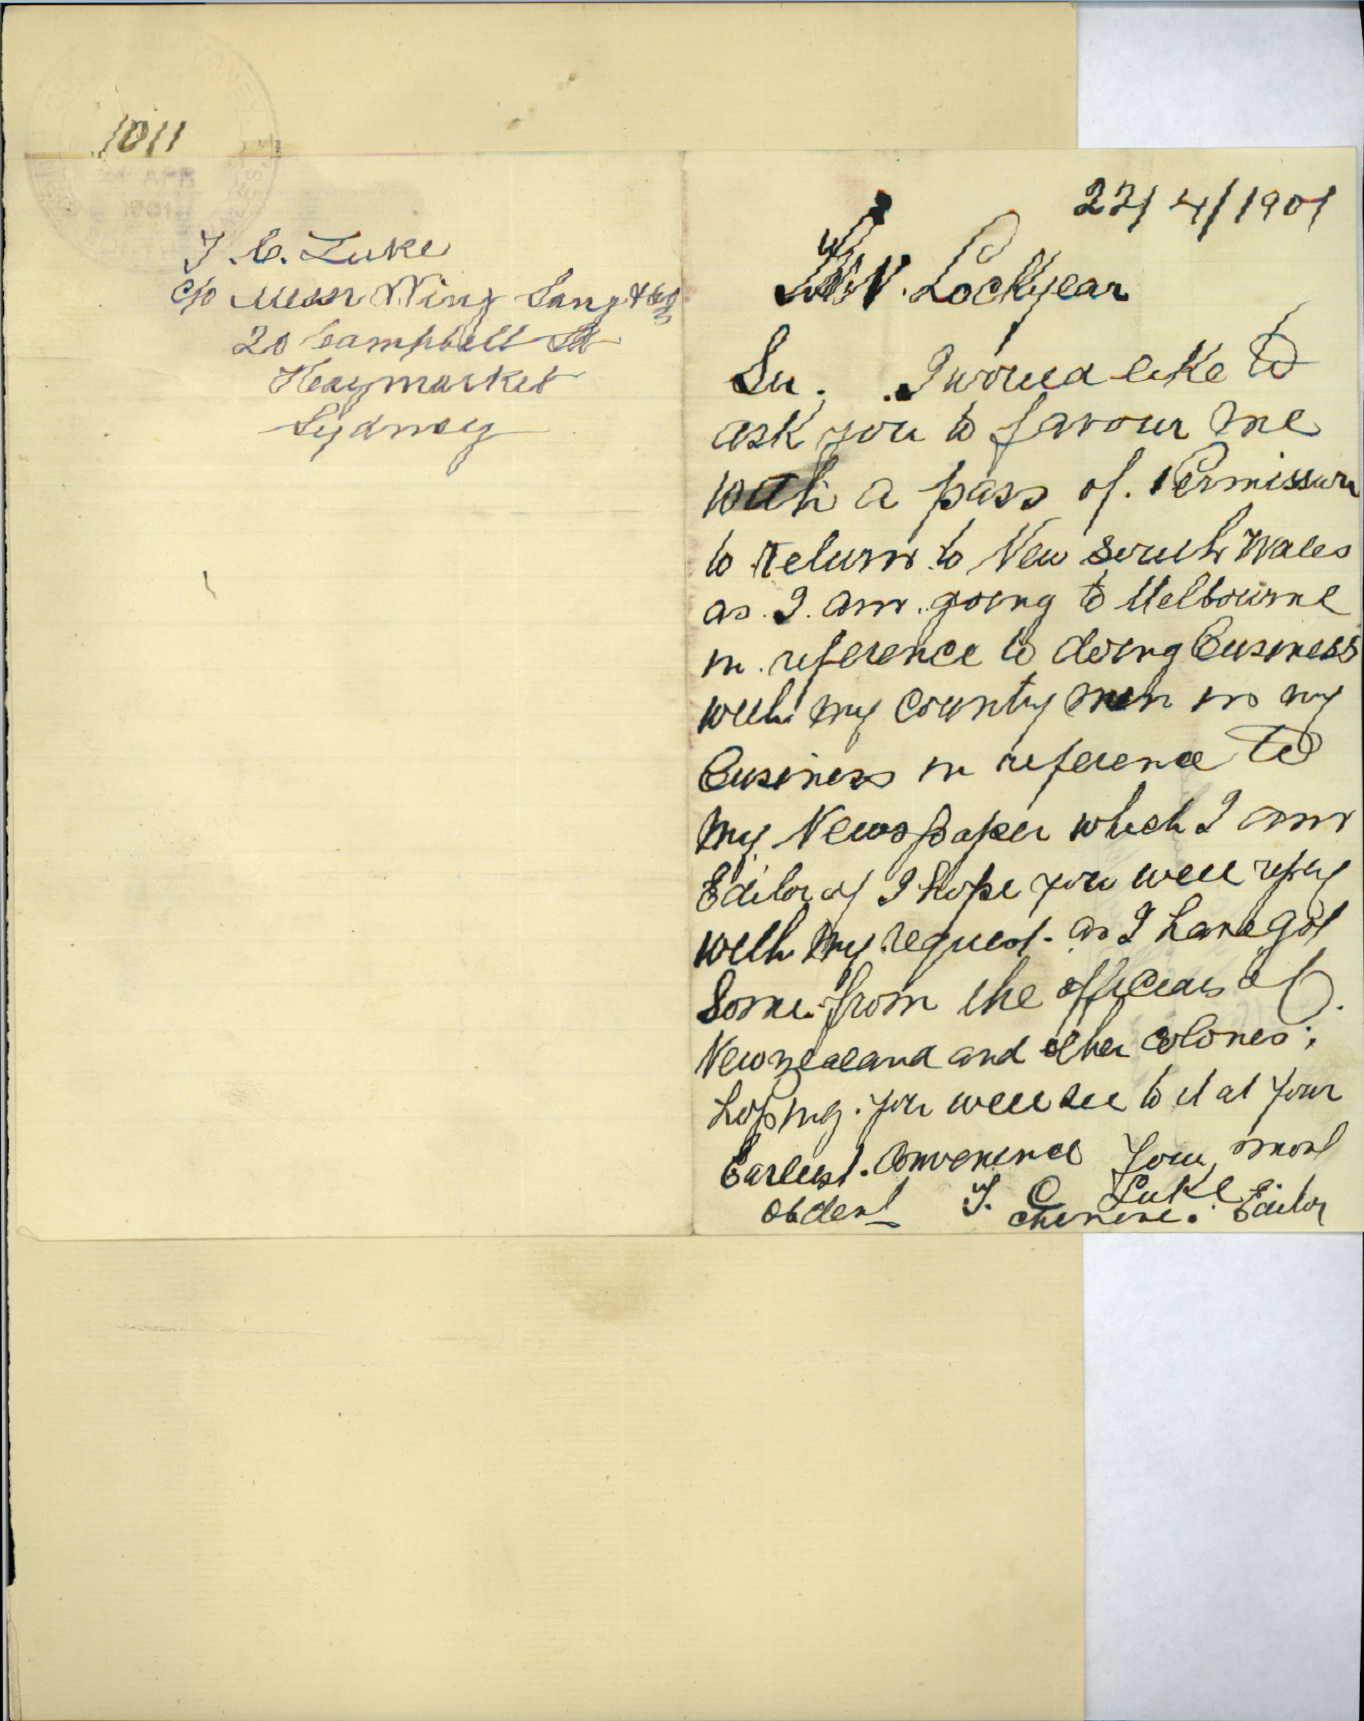 1011
T. C. Luke
c/o Messr Wing Sang & Co
20 Campbell St
Haymarket
Sydney
22/4/1901
N. Lockyear
Sir. I would like to
ask you to favour me
with a pass of. Permission
to return to New South Wales
as I am going to Melbourne
in reference to doing Business
with my County men in my
Business in reference to
My Newspaper which I am
Editor of I hope you will reply
with my request. as I have got
Some from the officials of
Newzealand and other colones;
hoping you will see to it at your
Earliest. Convenence Your most
obdent T. C. Luke
Chinese. Editor